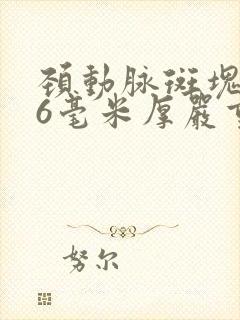 頚動脉斑塊
6毫米厚嚴
努尔